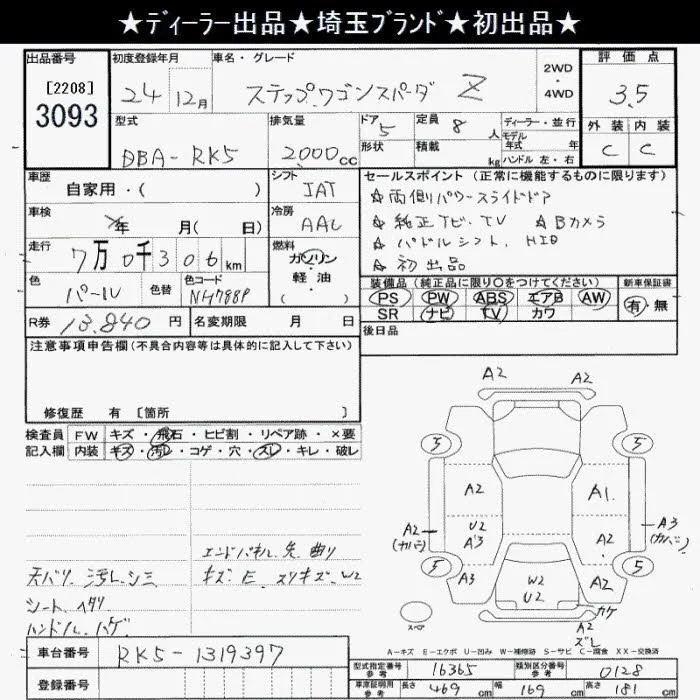 ★ディーラー出品★埼玉ブランド★初出品★
出品番号
[2208]
3093
初度登録年月
24 12月
車名・グレード
ステップワゴンスパーダ Z
2WD
・
4WD
評価点
3.5
外装 内装
C C
型式
DBA-RK5
排気量
2,000cc
ドア
5
形状
定員 8 人
積載 kg
ディーラー・並行
モデル年式 年
ハンドル 左・右
車歴
自家用・( )
シフト
IAT
セールスポイント(正常に機能するものに限ります)
☆両側パワースライドドア
☆純正ナビ、TV ☆Bカメラ
☆パドルシフト、HID
☆初出品
車検
年 月( 日)
冷房
AAC
走行
7万0千306km
燃料
ガソリン
・
軽・油
( )
色
パール
色替
色コード
NH788P
装備品(純正品に限り○をつけてください)
PS PW ABS エアB AW
SR ナビ TV カワ
新車保証書
有・無
R券 13,840円
名変期限 月 日
後日品
注意事項申告欄(不具合内容等は具体的に記入して下さい)
修復歴 有 [箇所 ]
検査員記入欄
FW キズ・飛石・ヒビ割・リペア跡・×要
内装 キズ・汚レ・コゲ・穴・スレ・キレ・破レ
エンドパネル先曲り
天バリ汚レ、シミ
キズ、E、スリキズ、W2
シート、ヘタリ
ハンドル、ハゲ
A2 A2
5 5
A2 A1
A2
(カバミ)
U2
A3
A2
A3
(カバミ)
5 5
A3
W2
U2
A2
カケ
スペア
A2
ズレ
A-キズ E-エクボ U-凹み W-補修跡 S-サビ C-腐食 XX-交換済
車台番号 RK5-1319397
登録番号
型式指定番号
参考
16365
類別区分番号
参考
0128
車庫証明用
参考
長さ 469cm 幅 169cm 高さ 181cm